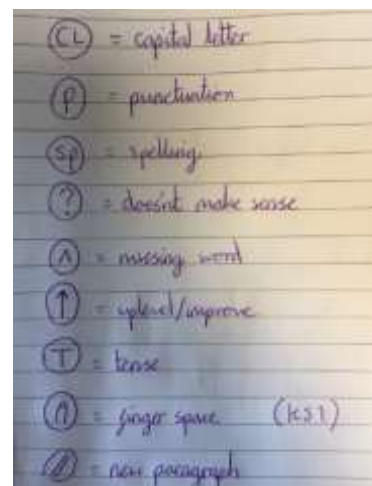 CL = capital letter
P = punctuation
Sp = spelling
? = doesn't make sense
^ = missing word
↑ = uplevel/improve
T = tense
= finger space (KS1)
// = new paragraph